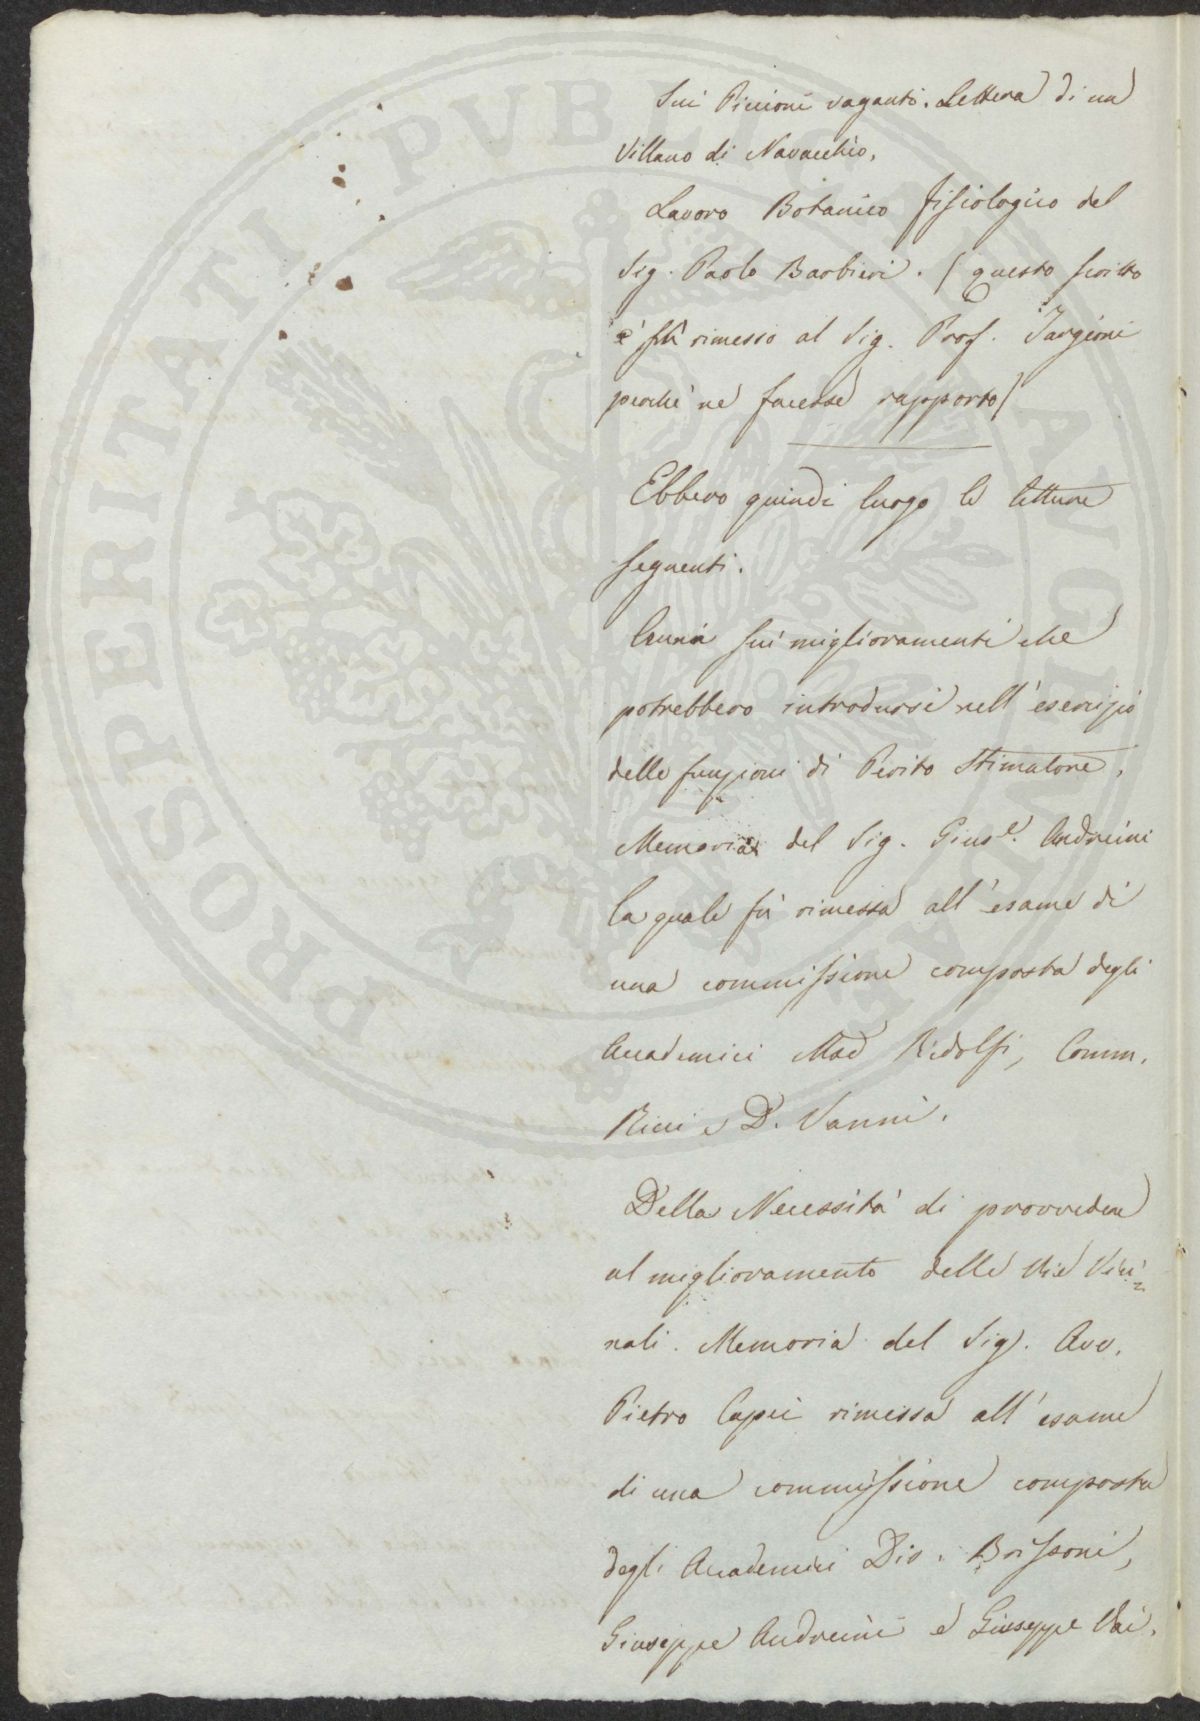 Sui Piccioni vaganti. Lettera di un
Villano di Navacchio.
Lavoro Botanico fisiologico del
Sig. Paolo Barbieri. (questo scritto
è fù rimesso al Sig. Prof. Targioni
perchè ne facesse rapporto)
Ebbero quindi luogo le letture
seguenti.
Cenni sui miglioramenti che
potrebbero introdursi nell'esercizio
delle funzioni di Perito Stimatore,
Memoria del Sig. Gius.e Andreini
la quale fù rimessa all'esame di
una commissione composta degli
Accademici March Ridolfi, Comm.
Ricci e D. Vanni.
Della Necessità di provvedere
al miglioramento delle Vie Vici-
nali. Memoria del Sig. Avv.
Pietro Capei rimessa all'esame
di una commissione composta
degli Accademici Dir. Brissoni,
Giuseppe Andreini e Giuseppe Vai.
PROSPERITATI PUBLICAE AUGENDAE